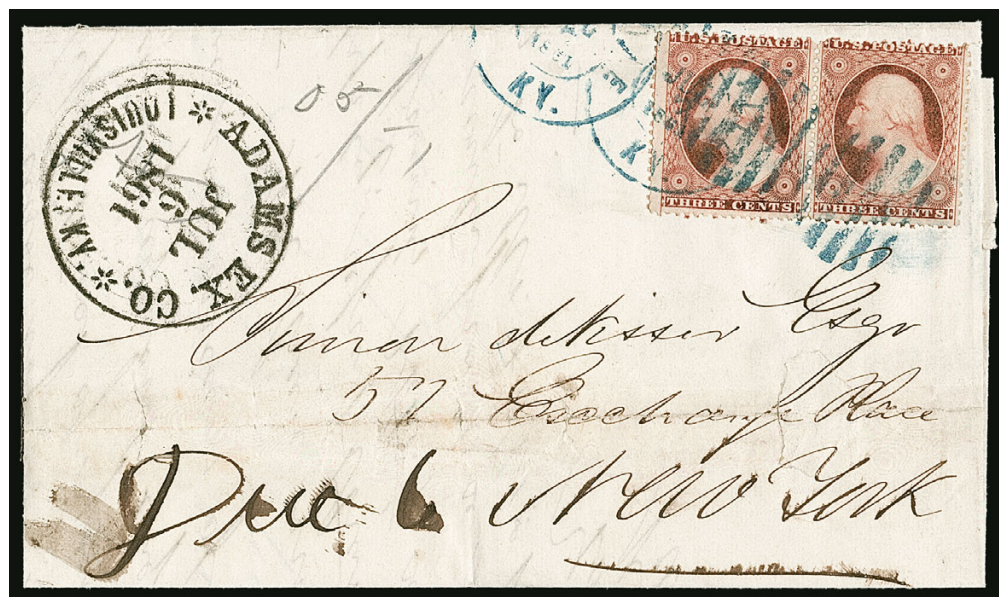 ADAMS EX. CO.
LOUISVILLE, KY.
JUL
16
1861
1861
KY.
U.S. POSTAGE
THREE CENTS
U.S. POSTAGE
THREE CENTS
Simeon deVisser Esqr
57 Exchange Place
New York
Due 6